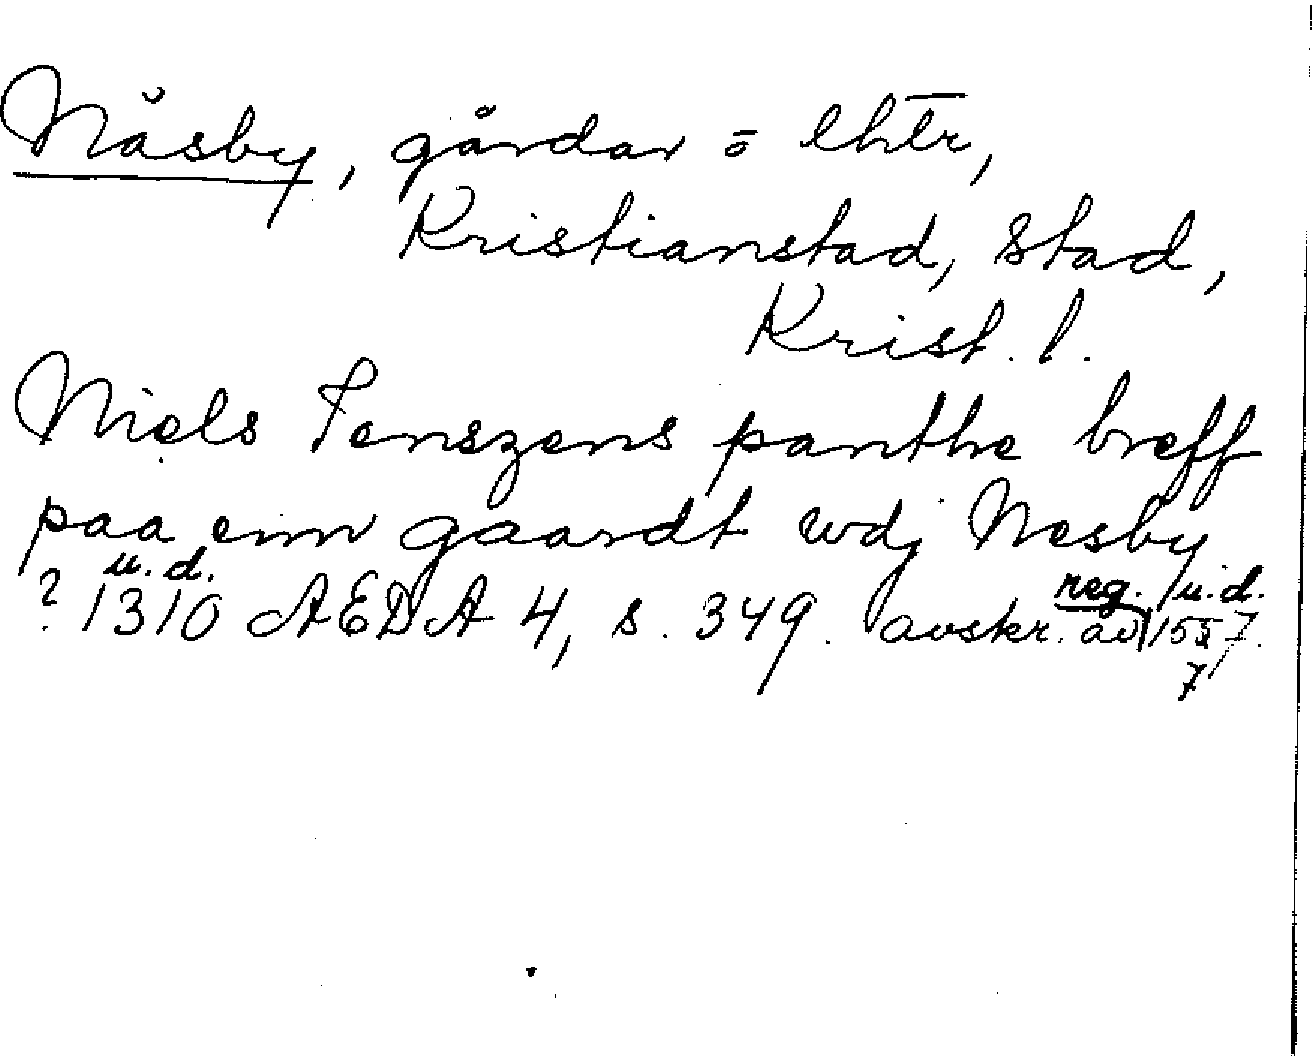 Näsby, gårdar o lhtr,
Kristianstad, stad,
Krist. l.
Niels Jenszens panthe breff
paa einn gaardt wdj Nesby
u. d. reg. u. d.
? 1310 AEDA 4, s. 349. avskr. av 1557.
7